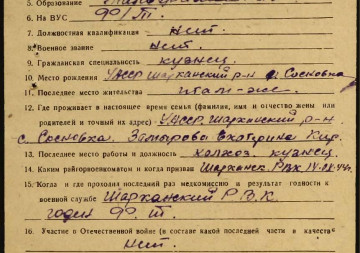 5. Образование
6. На ВУС 99/III.
7. Должностная квалификация нет
8. Военное звание нет.
9. Гражданская специальность кузнец
10. Место рождения УАССР Шарканский р-н д. Сосновка
11. Последнее место жительства там-же.
12. Где проживает в настоящее время семья (фамилия, имя и отчество жены или
родителей и точный их адрес) УАССР, Шарканский р-н
с. Сосновка. Екатерина Кир.
13. Последнее место работы и должность колхоз. кузнец.
14. Каким райгорвоенкоматом и когда призван Шарканск. РВК
15. Когда и где проходил последний раз медкомиссию и результат годности к
военной службе Шарканский Р.В.К.
годен 99. III.
16. Участие в Отечественной войне (в составе какой последней части в качестве
нет.